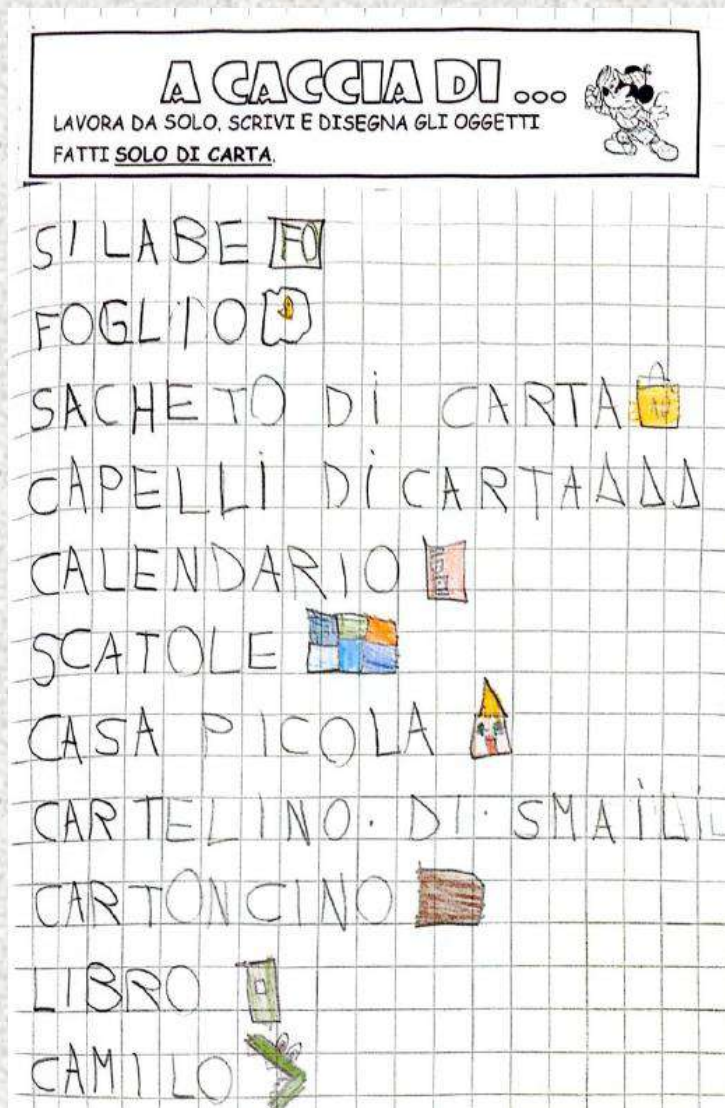 A CACCIA DI ...
LAVORA DA SOLO. SCRIVI E DISEGNA GLI OGGETTI
FATTI SOLO DI CARTA.
SILABE FO
FOGLIO
SACHETO DI CARTA
CAPELLI DI CARTA
CALENDARIO
SCATOLE
CASA PICOLA
CARTELINO. DI. SMAILI
CARTONCINO
LIBRO
CAMILO